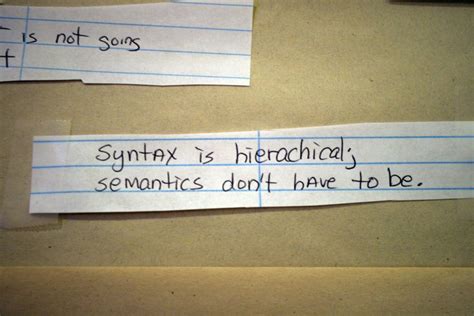 is not going
t
syntax is hierachical;
semantics don't have to be.